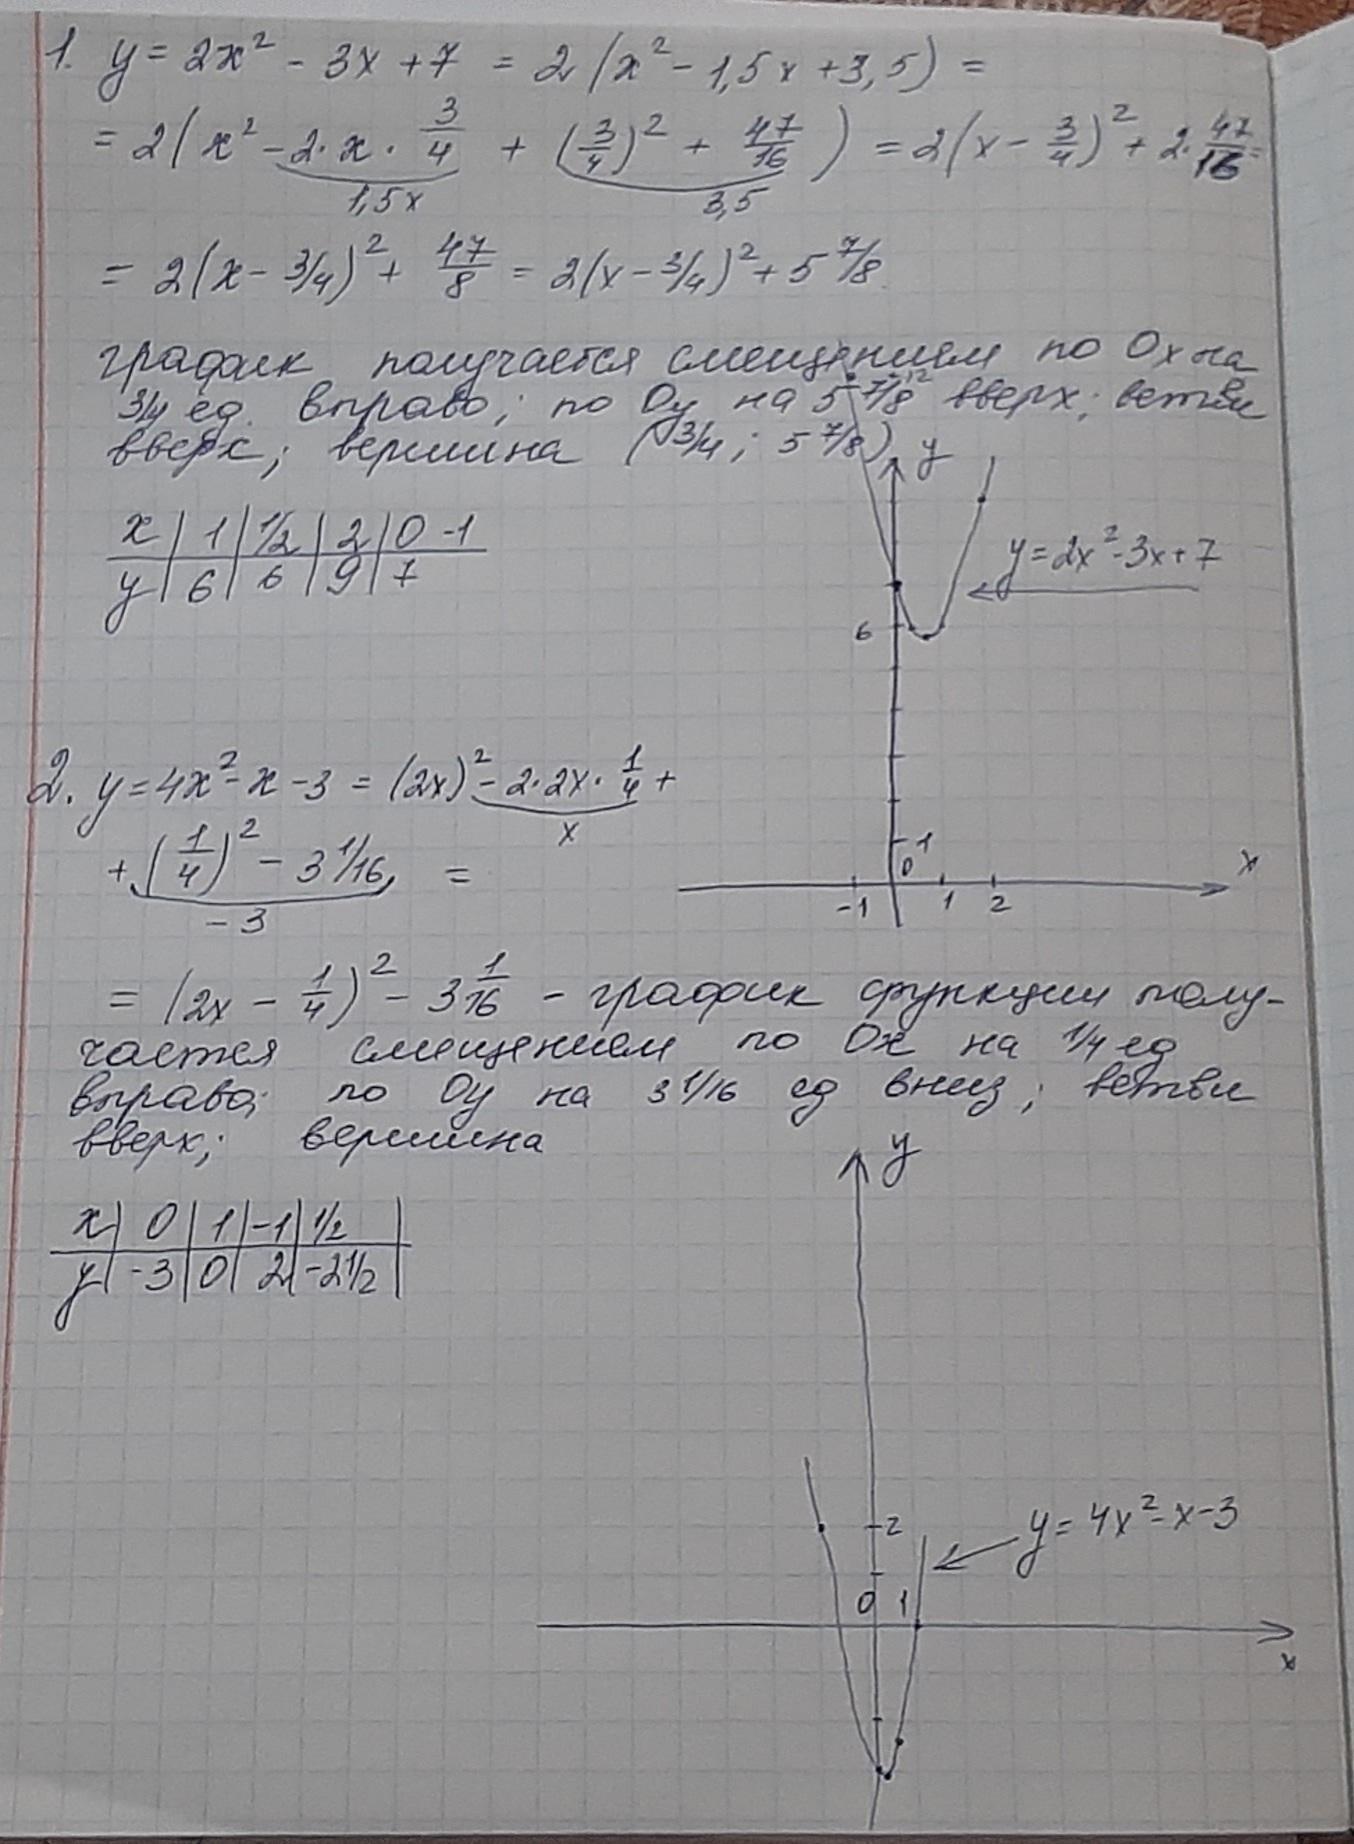 1. y = 2x² - 3x + 7 = 2 (x² - 1,5x + 3,5) =
= 2(x² - 2·x·3/4 + (3/4)² + 47/16) = 2(x - 3/4)² + 2·47/16 =
1,5x 3,5
= 2(x - 3/4)² + 47/8 = 2(x - 3/4)² + 5 7/8
график получается смещением по Ox на
3/4 ед. вправо; по Oy на 5 7/8 вверх; ветви
вверх; вершина (3/4; 5 7/8)
x | 1 | 1/2 | 2 | 0 -1
y | 6 | 6 | 9 | 7
y
y = 2x² - 3x + 7
6
1
0
x
-1 1 2
2. y = 4x² - x - 3 = (2x)² - 2·2x·1/4 +
x
+ (1/4)² - 3 1/16 =
-3
= (2x - 1/4)² - 3 1/16 - график функции полу-
чается смещением по Ox на 1/4 ед
вправо; по Oy на 3 1/16 ед вниз; ветви
вверх; вершина
x | 0 | 1 | -1 | 1/2 |
y | -3 | 0 | 2 | -2 1/2 |
y
2
y = 4x² - x - 3
0 1
x